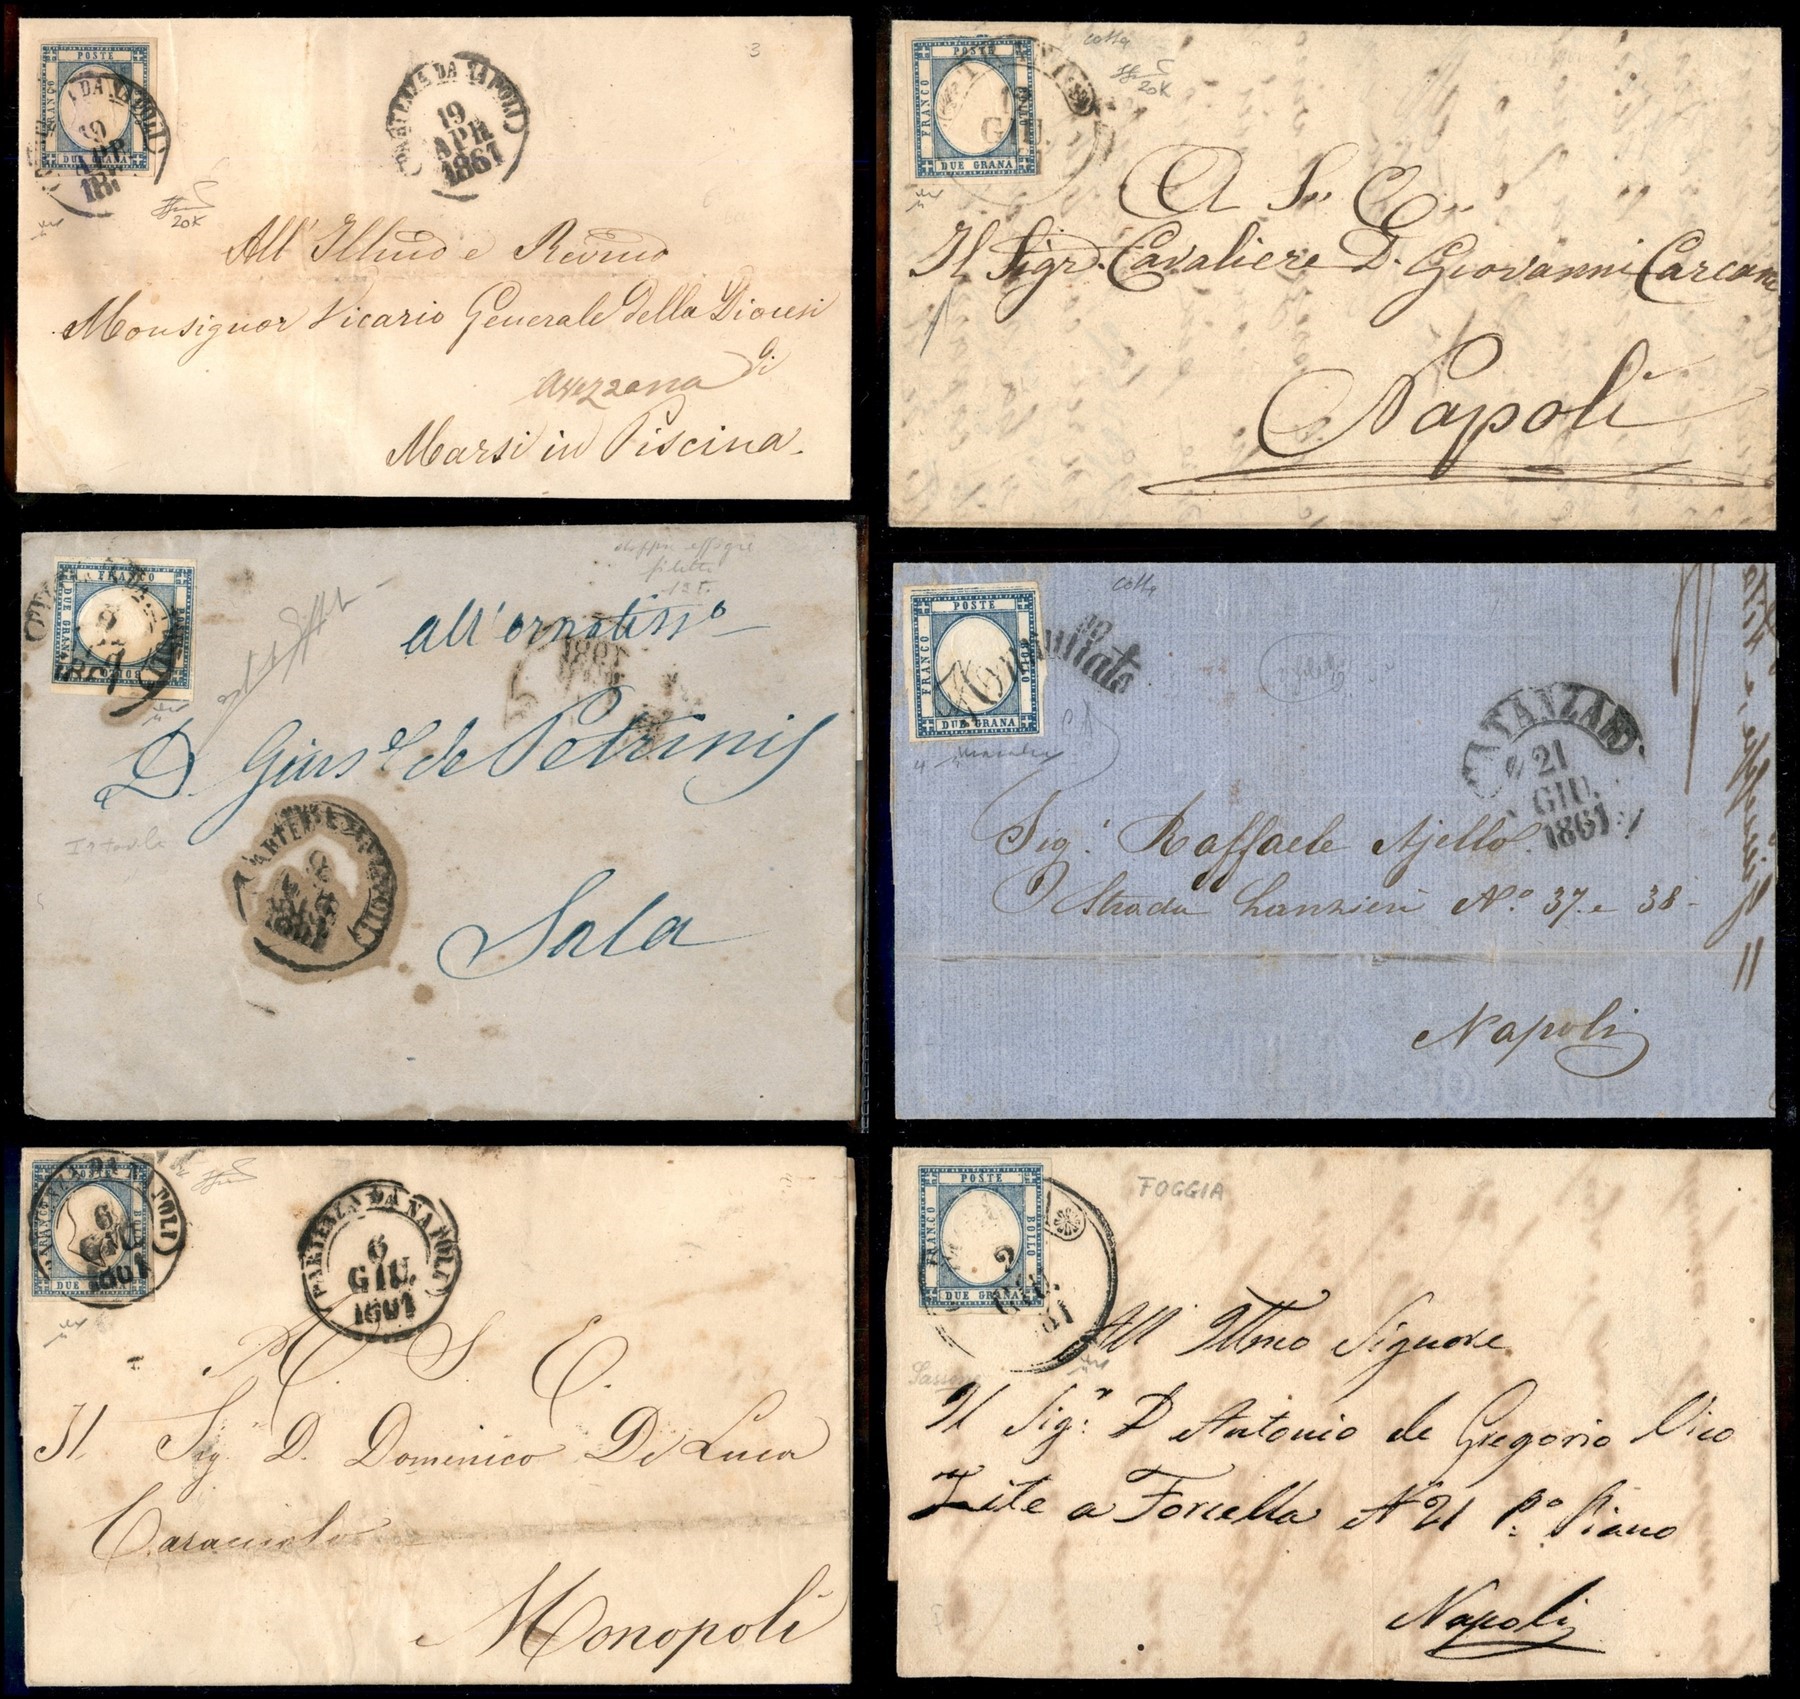 POSTE
FRANCO
DUE GRANA
DA NAPOLI
19
APR
PARTENZA DA NAPOLI
19
APR
1861
3
20K
All' Illmo e Revmo
Monsignor Vicario Generale della Diocesi
di
Avezzana
Marsi in Piscina.
POSTE
FRANCO
BOLLO
DUE GRANA
GIU
20K
A S. E.
Il Sigr. Cavaliere D. Giovanni Carcano
Napoli
FRANCO
DUE GRANA
POSTE
BOLLO
9
1861
doppia effigie
1861
all'ornatissmo
D. Giusé de Petrinis
PARTENZA DA NAPOLI
9
1861
Sala
POSTE
FRANCO
BOLLO
DUE GRANA
Annullato
CATANZARO
21
GIU.
1861
Sigr. Raffaele Ajello
Strada Lanzieri No. 37 e 38
Napoli
POSTE
BOLLO
DUE
PARTENZA DA NAPOLI
6
GIU.
1861
PARTENZA DA NAPOLI
6
GIU.
1861
A. S. E.
Il Sig. D. Domenico De Luca
Caracciolo
Monopoli
POSTE
FRANCO
BOLLO
DUE GRANA
2
GIU.
61
FOGGIA
All' Illmo Signore
Il Sigr. D Antonio de Gregorio Vico
Zite a Forcella N 21 Po. Piano
Napoli